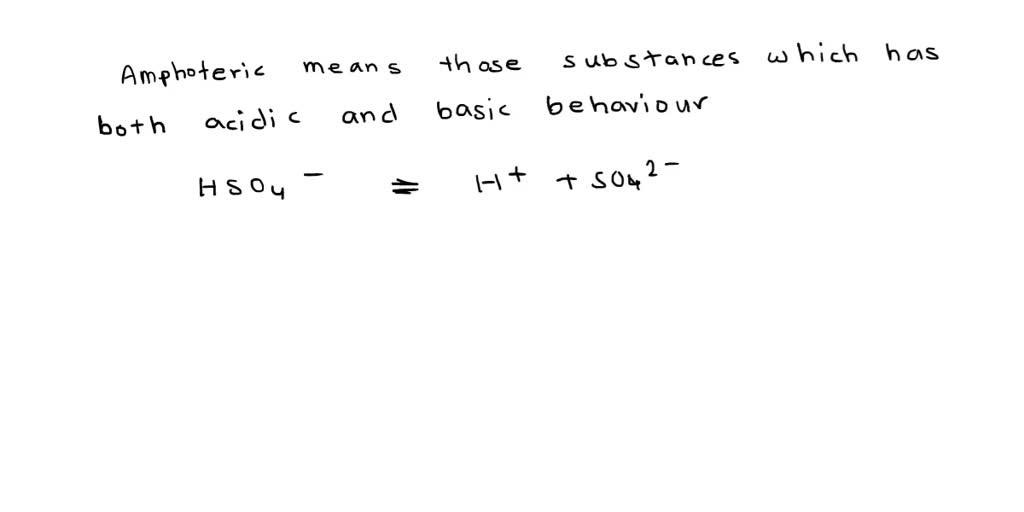 Amphoteric means those substances which has
both acidic and basic behaviour
HSO₄⁻ ⇌ H⁺ + SO₄²⁻